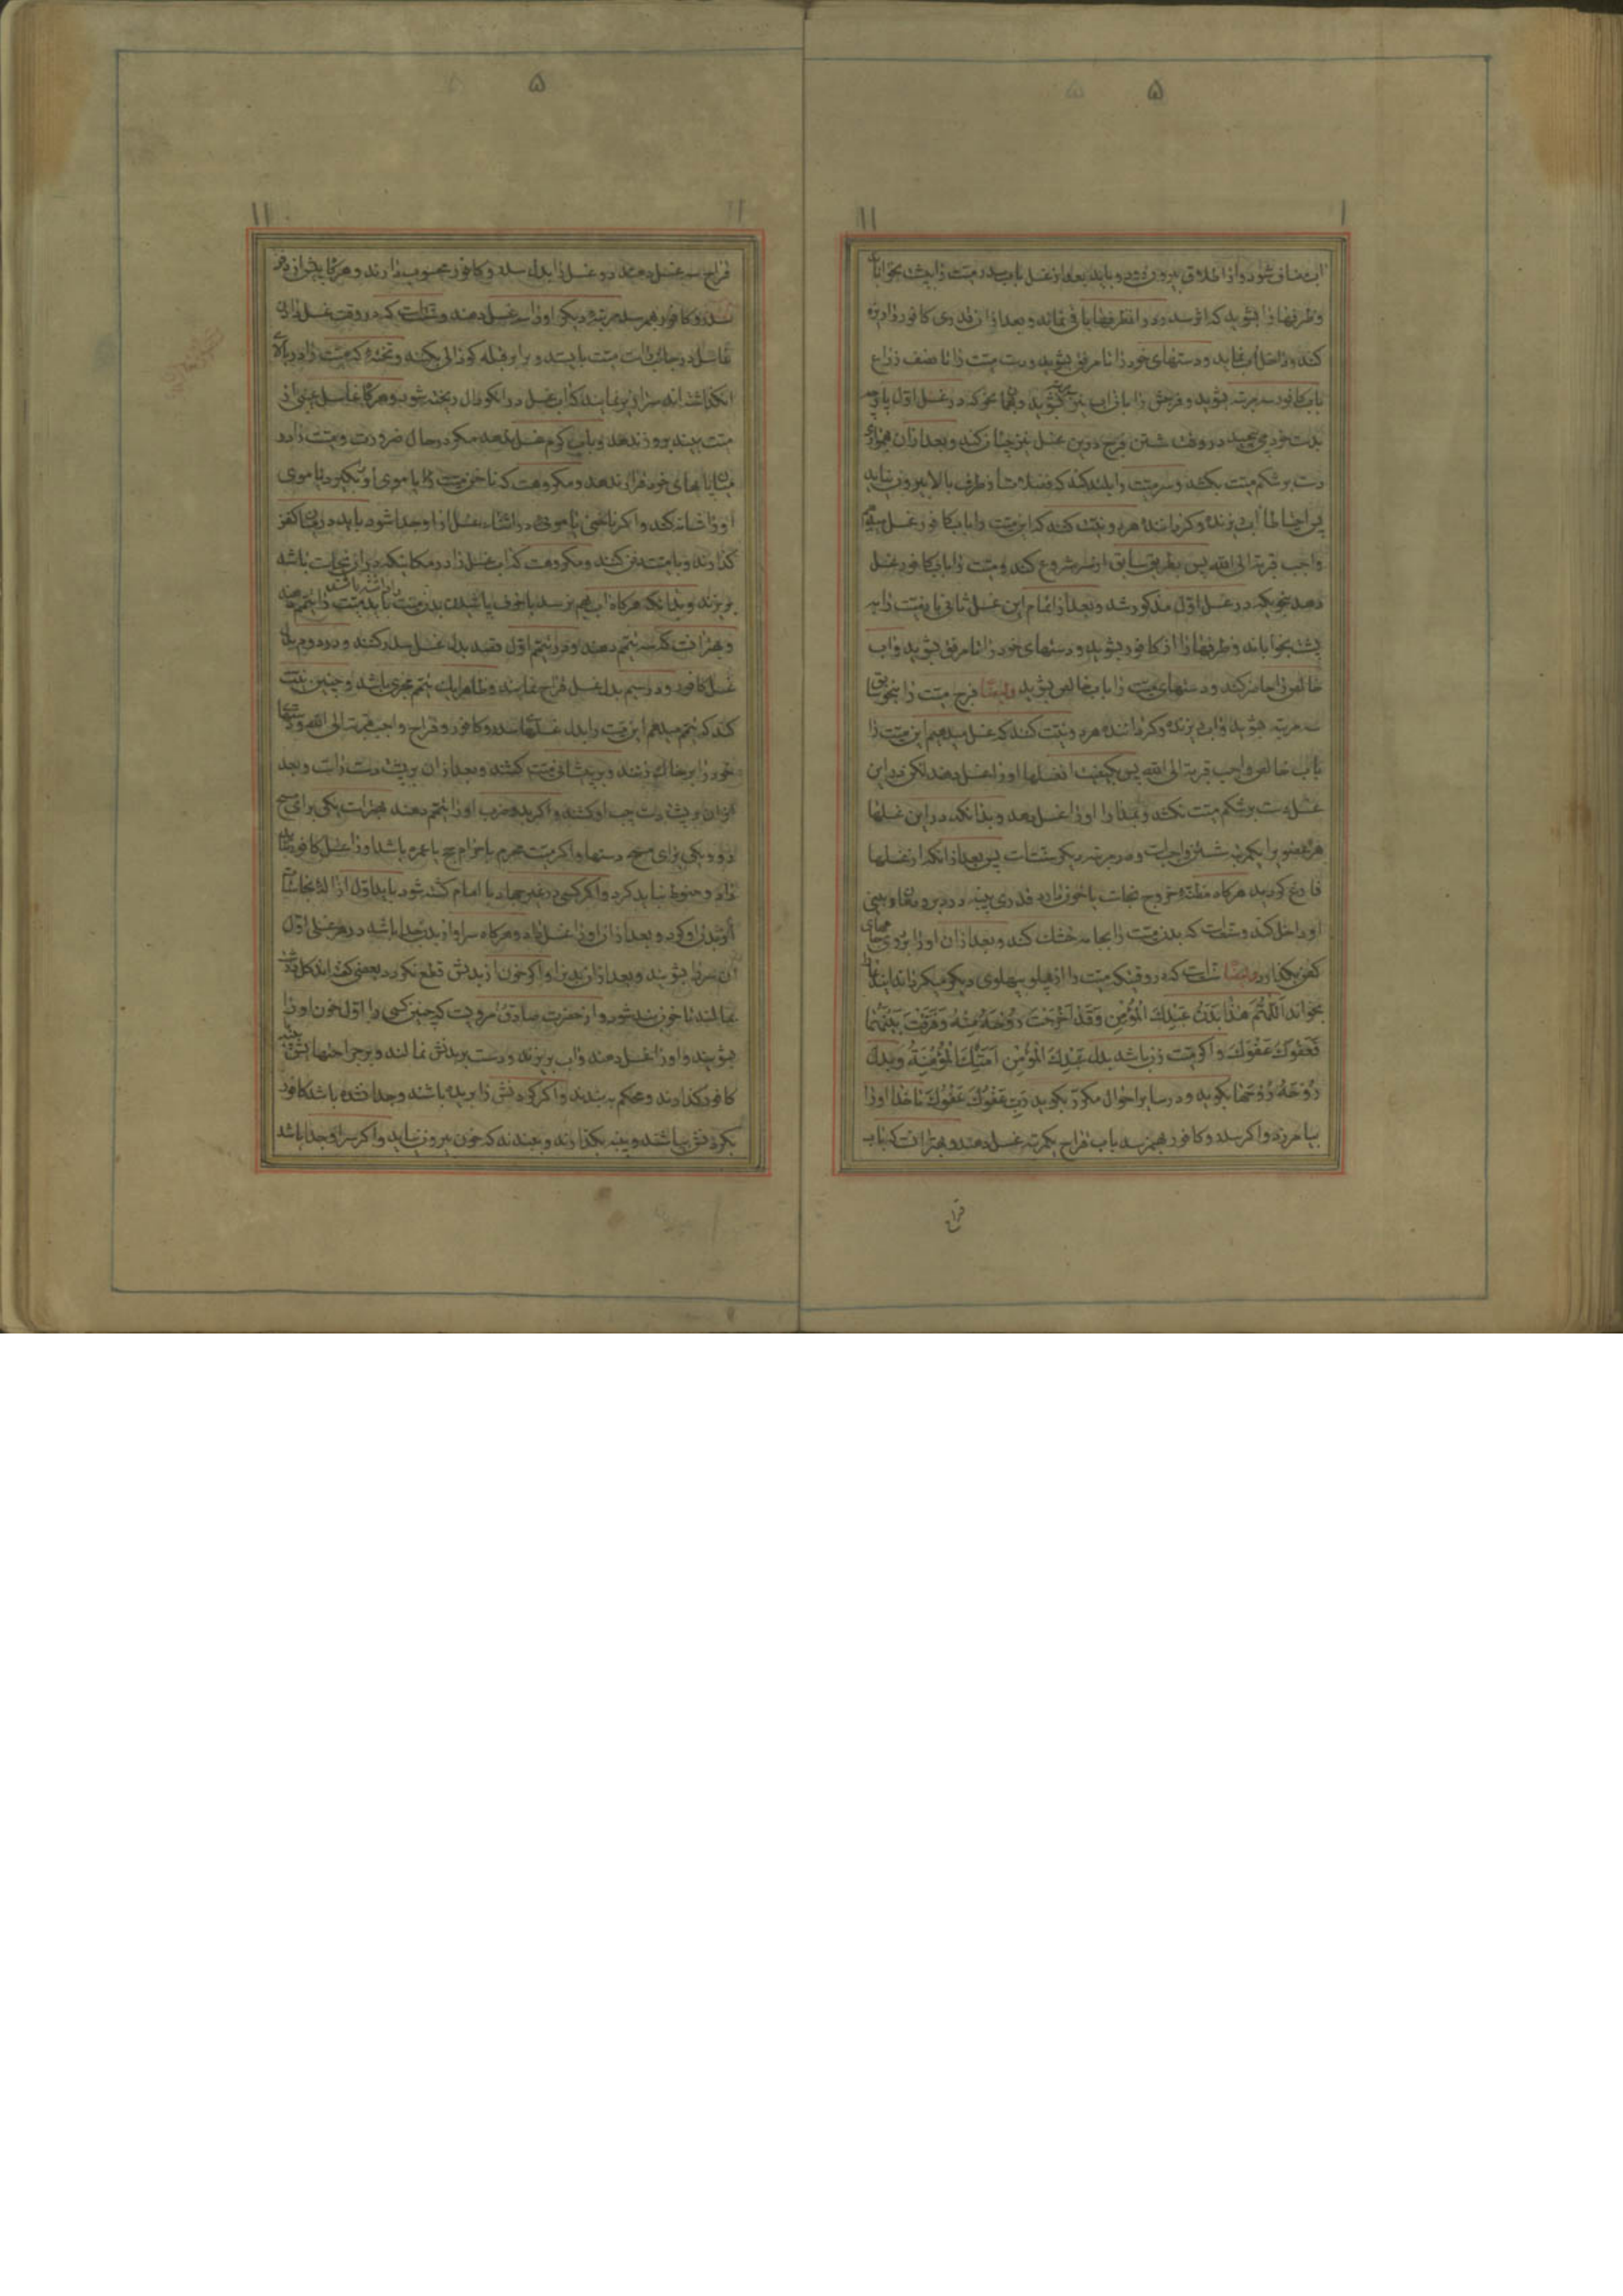 ۵
اب مضاف شود و از اطلاق بیرون رود و باید بعد از غسل باب سدر میت را به پشت بخواباند
و ظرفها را بشوید که اثر سدر در آن ظرفها باقی نماند و بعد از آن قدری کافور را ریزه
کند و داخل اب نماید و دستهای خود را تا مرفق بشوید و دست میت را تا نصف ذراع
باب کافور سه مرتبه بشوید و فرجش را با آن اب نیز بشوید و همان نحو که در غسل اول پارچه
بدست خود می پیچید در وقت شستن فرج در این غسل نیز چنان کند و بعد از آن هموار
دست بر شکم میت بکشد و سر میت را بلند کند که فضلات از طرف بالا بیرون نیاید
پس احتیاطا اب ریزنده و گرداننده هر دو نیت کنند که این میت را باب کافور غسل میدهم
واجب قربة الی الله پس بطریق سابق از سر شروع کند و میت را باب کافور غسل
دهد بنحویکه در غسل اول مذکور شد و بعد از اتمام این غسل ثانی باز میت را به
پشت بخواباند و ظرفها را از کافور بشوید و دستهای خود را تا مرفق بشوید و اب
خالص را حاضر کند و دستهای میت را باب خالص بشوید و ایضا فرج میت را بنحو سابق
سه مرتبه بشوید و اب ریزنده و گرداننده هر دو نیت کنند که غسل میدهیم این میت را
باب خالص واجب قربة الی الله پس بکیفیت آن غسلها او را غسل دهد لکن در این
غسل دست بر شکم میت نکشد و او را غسل دهد و بدانکه در این غسلها
هر عضو را یکمرتبه شستن واجبست و سه مرتبه دیگر سنت است پس بعد از آنکه از غسلها
فارغ گردید هرگاه مظنه خروج نجاست یا خون دارد قدری پنبه در دبر و دهان و بینی
او داخل کند و سنتست که بدن میت را بجامه خشک کند و بعد از آن او را بر روی جامهای
کفن بگذارد و ایضا سنت است که در وقتیکه میت را از پهلو به پهلوی دیگر میگرداند این دعا
بخواند اللهم هذا بدن عبدک المؤمن وقد اخرجت روحه منه وفرقت بینهما
فعفوک عفوک و اگر میت زن باشد بدل عبدک المؤمن امتک المؤمنة و بدل
روحه روحها بگوید و در سایر احوال مکرر بگوید رب عفوک عفوک تا خدا او را
بیامرزد و اگر سدر و کافور بهم نرسد باب قراح یکمرتبه غسل دهند و بهتر آنست که باب
قراح
۵
قراح سه غسل دهند و دو غسل را بدل سدر و کافور محسوب دارند و هرگاه پیش از دفن
سدر و کافور بهم رسد مرتبه دیگر او را سه غسل دهند و سنت است که در وقت غسل دادن
غاسل در جانب راست میت بایستد و برابر قبله گودالی بکنند و تخته که میت را در بالای
آن گذاشته اند سرازیر نمایند که اب غسل در آن گودال ریخته شود و هرگاه غاسل عیبی از
میت بیند بروز ندهد و باب گرم غسل ندهد مگر در حال ضرورت و میت را در
میان پاهای خود قرار ندهد و مکروهست که ناخن میت را یا موی او بگیرد یا موی
او را شانه کند و اگر ناخنی یا موئی در اثناء غسل از او جدا شود باید در میان کفن
گذارند و با میت دفن کنند و مکروهست که اب غسل را در مکانیکه در آن نجاست باشد
بریزند و بدانکه هرگاه اب بهم نرسد یا خوف پاشیدن بدن میت را داشته باشند باید میت را تیمم دهند
و بهتر آنست که سه تیمم دهند و در تیمم اول قصد بدل غسل سدر کنند و در دوم بدل
غسل کافور و در سیم بدل غسل قراح نمایند و ظاهرا یک تیمم مجزی باشد و چنین نیت
کند که تیمم میدهم این میت را بدل غسلهای سدر و کافور و قراح واجب قربة الی الله و دستها
خود را بر خاک زنند و بر پیشانی میت کشند و بعد از آن بر پشت دست راست و بعد
از آن بر پشت دست چپ او کشند و اگر بدو ضرب او را تیمم دهند بهتر است یکی برای مسح
رو و یکی برای مسح دستها و اگر میت محرم باحرام حج یا عمره باشد او را غسل کافور نباید
داد و حنوط نباید کرد و اگر کسی در غیر جهاد با امام کشته شود باید اول ازاله نجاست
از بدن او کرد و بعد از آن او را غسل داد و هرگاه سر او از بدن جدا باشد در هر غسلی اول
آن سر را بشویند و بعد از آن بدن را و اگر خون از بدنش قطع نگردد بعضی گفته اند گل
بمالند تا خون بند شود و از حضرت صادق مرویست که چنین کسی را اول خون او را
بشویند و او را غسل دهند و اب بریزند و دست بر بدنش نمالند و بر جراحتهایش پنبه
کافور گذارند و محکم ببندند و اگر گردنش را بریده باشند و جدا نشده باشد کافور
بگردنش بپاشند و پنبه بگذارند و ببندند که خون بیرون نیاید و اگر سر او جدا باشد